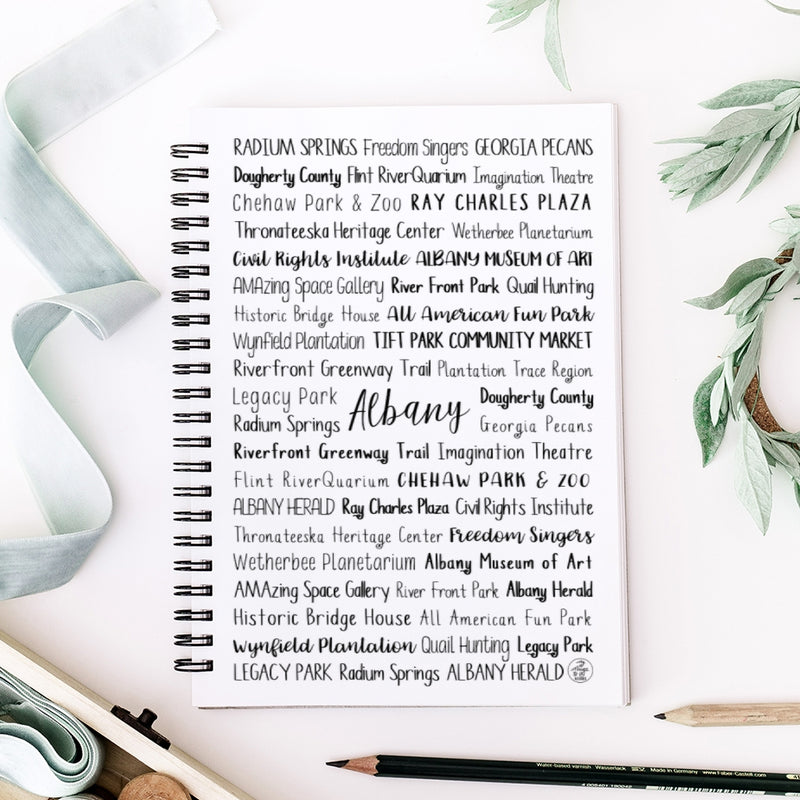 RADIUM SPRINGS Freedom Singers GEORGIA PECANS
Dougherty County Flint RiverQuarium Imagination Theatre
Chehaw Park & Zoo RAY CHARLES PLAZA
Thronateeska Heritage Center Wetherbee Planetarium
Civil Rights Institute ALBANY MUSEUM OF ART
AMAzing Space Gallery River Front Park Quail Hunting
Historic Bridge House All American Fun Park
Wynfield Plantation TIFT PARK COMMUNITY MARKET
Riverfront Greenway Trail Plantation Trace Region
Legacy Park Dougherty County
Albany
Radium Springs Georgia Pecans
Riverfront Greenway Trail Imagination Theatre
Flint RiverQuarium CHEHAW PARK & ZOO
ALBANY HERALD Ray Charles Plaza Civil Rights Institute
Thronateeska Heritage Center Freedom Singers
Wetherbee Planetarium Albany Museum of Art
AMAzing Space Gallery River Front Park Albany Herald
Historic Bridge House All American Fun Park
Wynfield Plantation Quail Hunting Legacy Park
LEGACY PARK Radium Springs ALBANY HERALD
Water-based varnish Wasserlack Made in Germany www.Faber-Castell.com